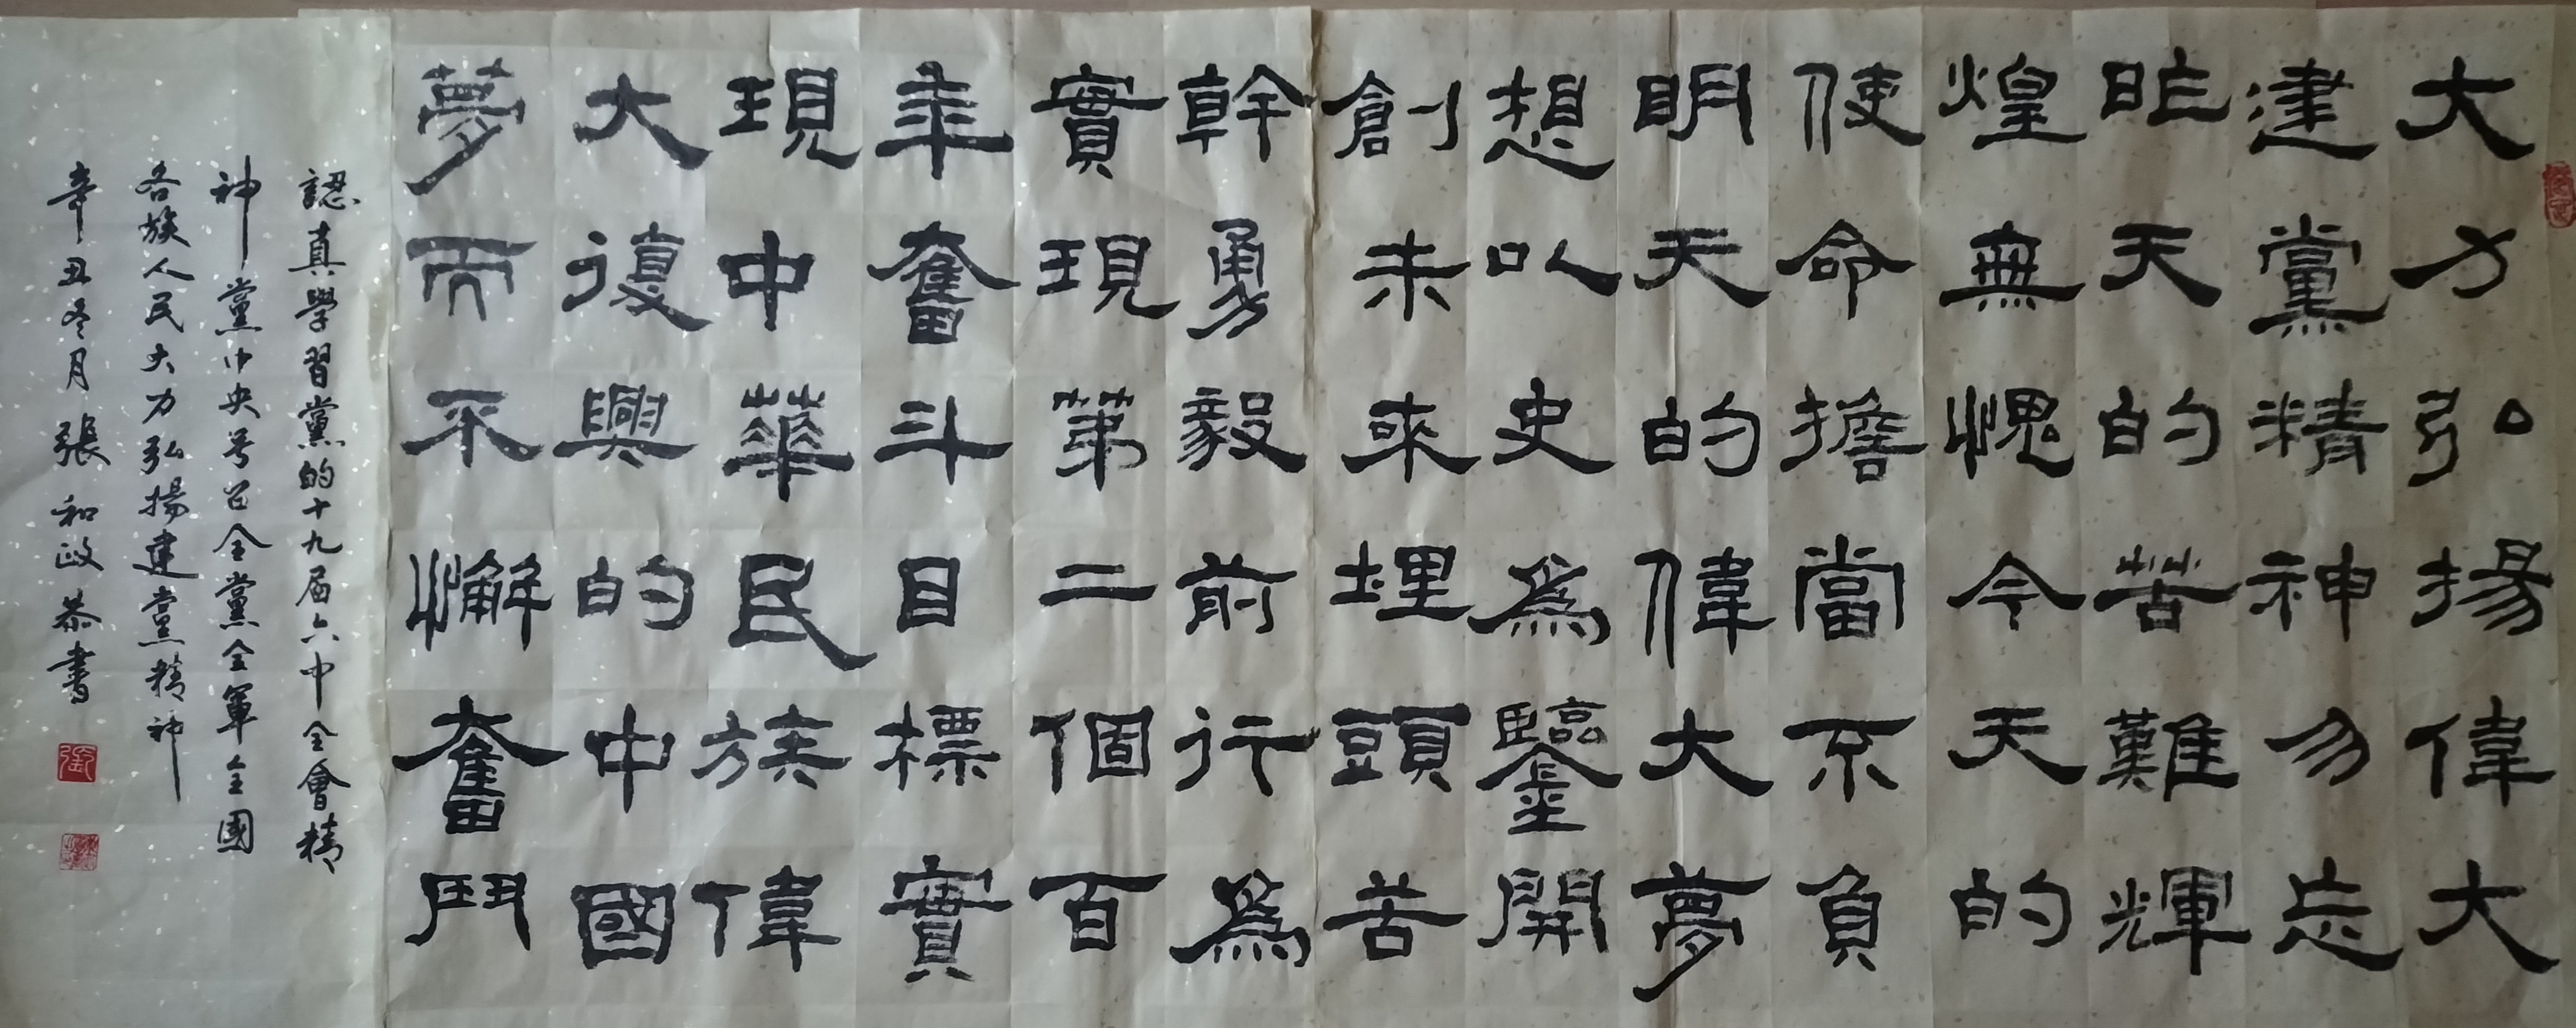 大力弘揚偉大
建黨精神勿忘
昨天的苦難輝
煌無愧今天的
使命擔當不負
明天的偉大夢
想以史爲鑒開
創未來埋頭苦
幹勇毅前行爲
實現第二個百
年奮斗目標實
現中華民族偉
大復興的中國
夢而不懈奮鬥
認真學習黨的十九届六中全會精
神黨中央号召全黨全軍全國
各族人民大力弘揚建黨精神
辛丑冬月張和政恭書